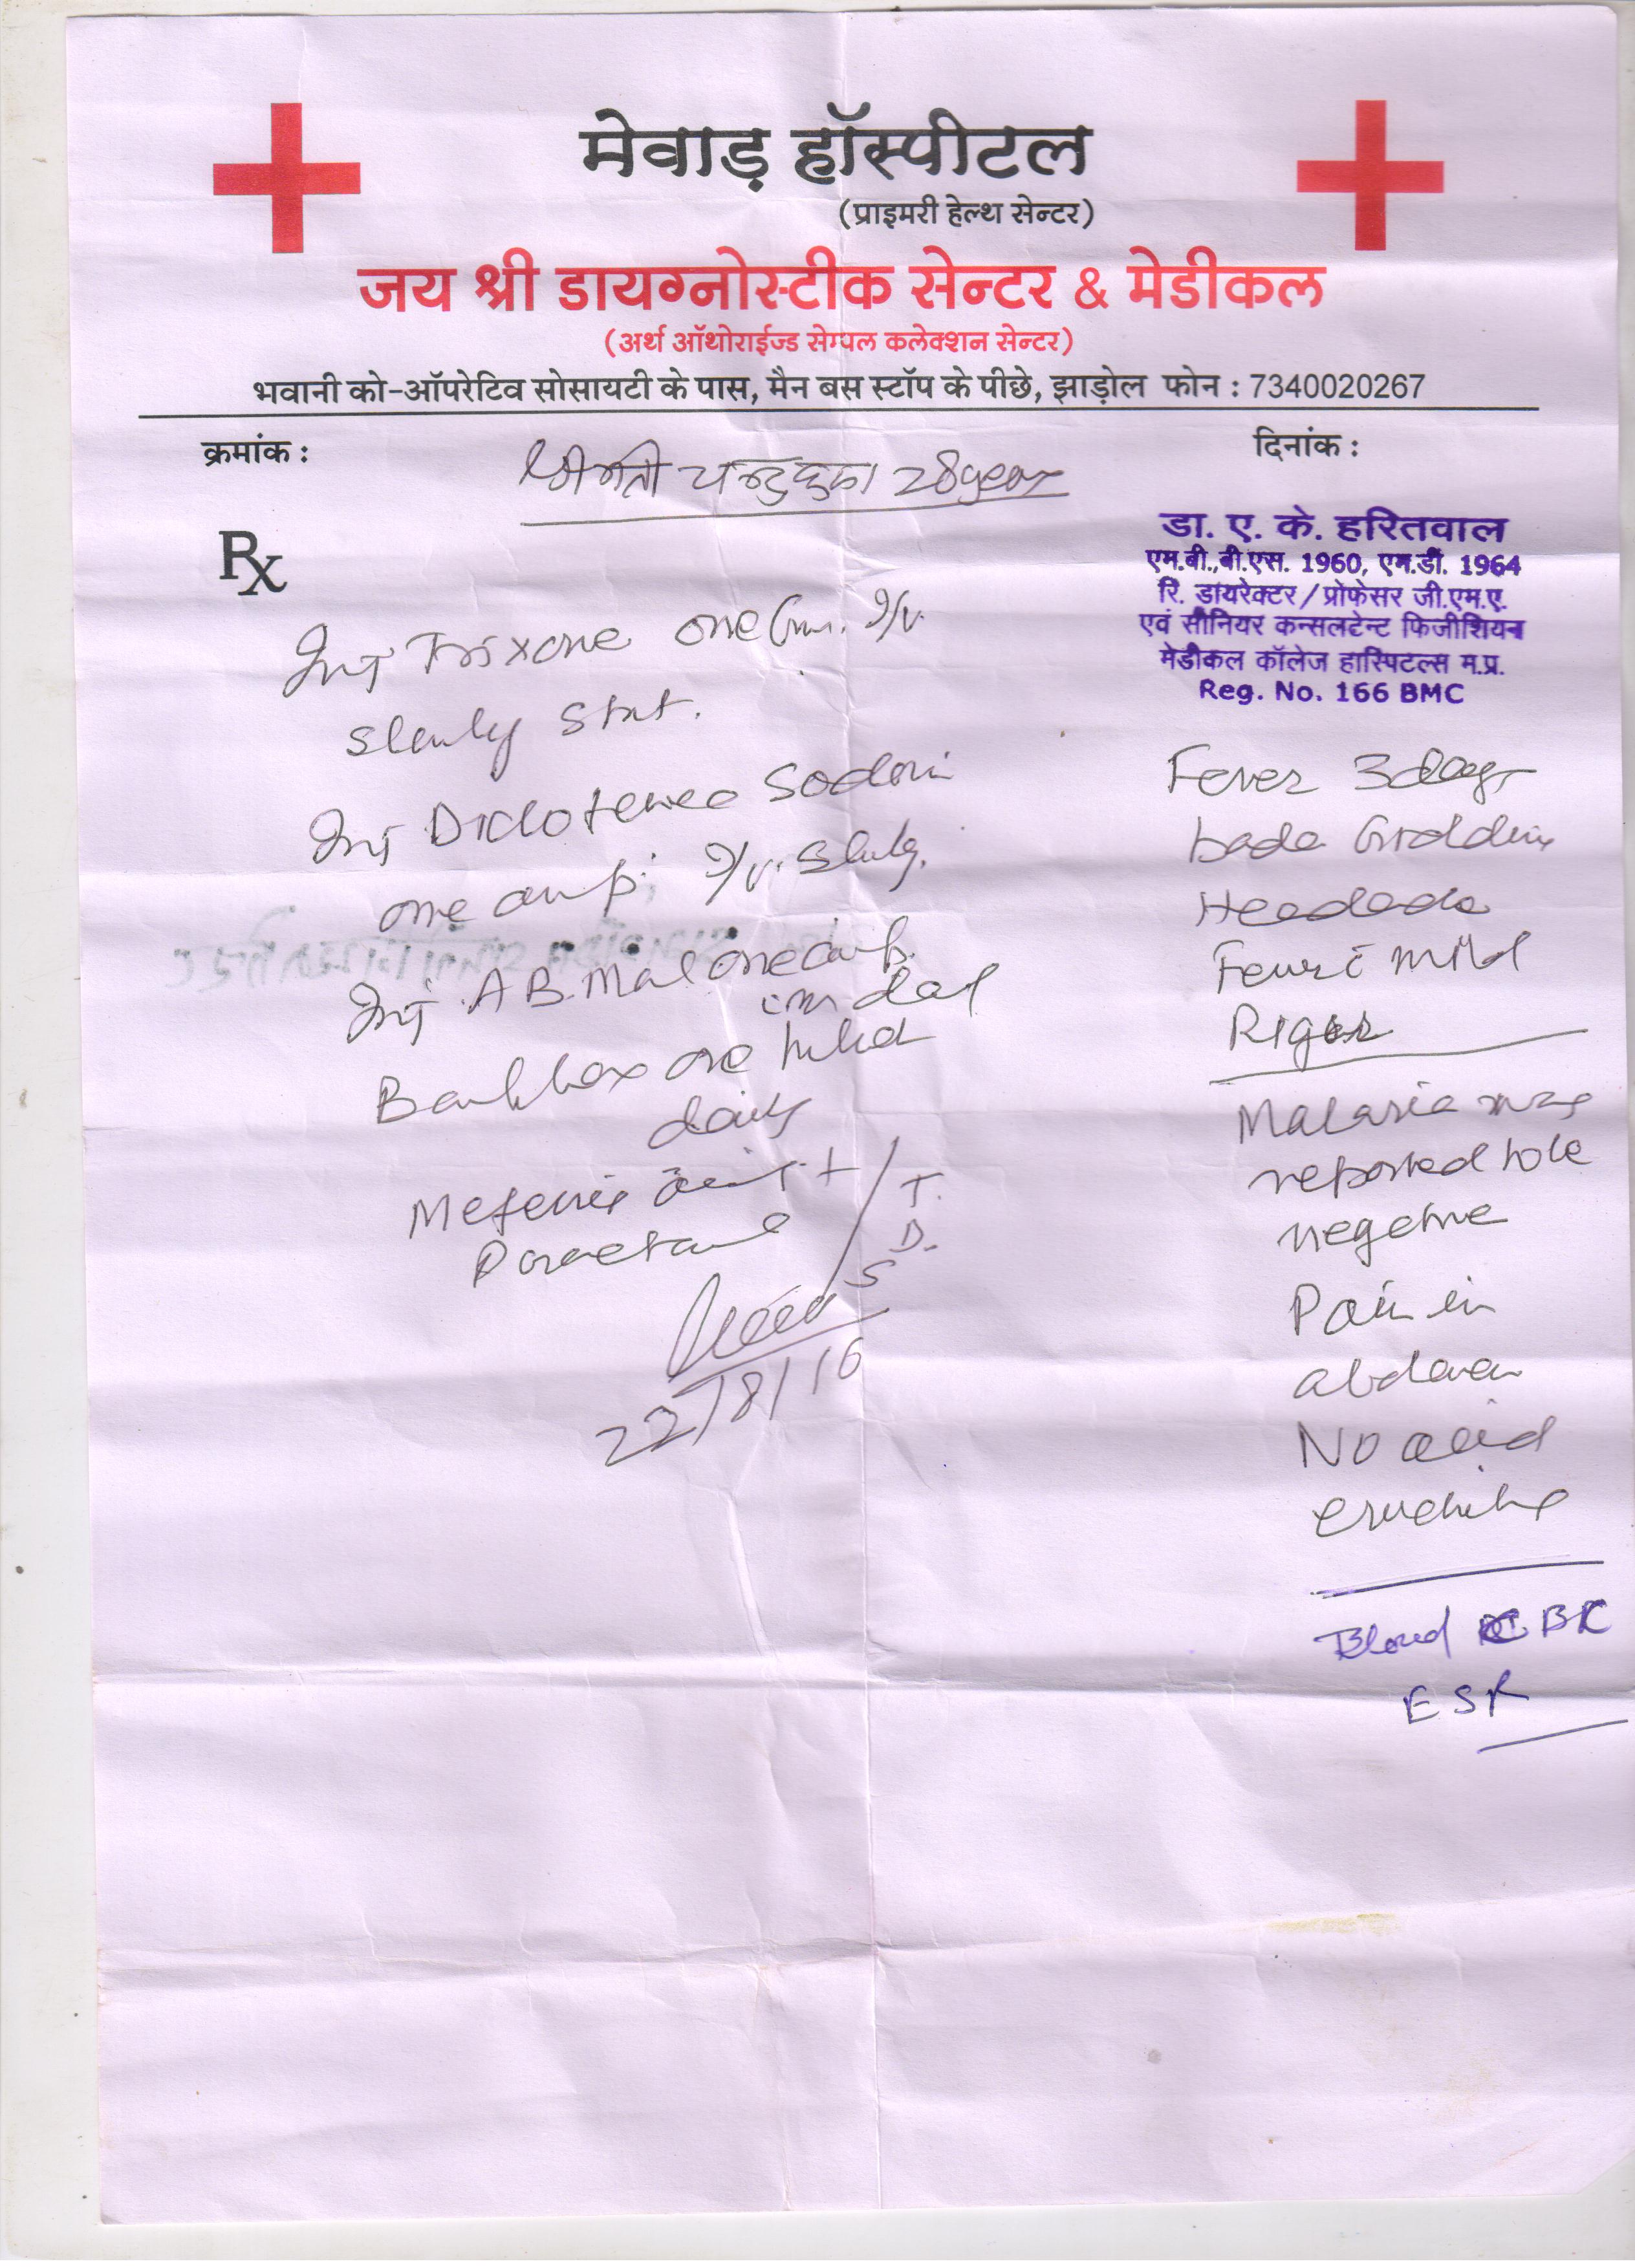 मेवाड़ हॉस्पीटल
(प्राइमरी हेल्थ सेन्टर)
जय श्री डायग्नोस्टीक सेन्टर & मेडीकल
(अर्थ ऑथोराईज्ड सेम्पल कलेक्शन सेन्टर)
भवानी को-ऑपरेटिव सोसायटी के पास, मैन बस स्टॉप के पीछे, झाड़ोल फोन : 7340020267
क्रमांक :
दिनांक :
श्रीमती 28 year
Rx
डा. ए. के. हरितवाल
एम.बी.,बी.एस. 1960, एम.डी. 1964
रि. डायरेक्टर/प्रोफेसर जी.एम.ए.
एवं सीनियर कन्सलटेन्ट फिजीशियन
मेडीकल कॉलेज हास्पिटल्स म.प्र.
Reg. No. 166 BMC
Inj Trixone one Gm. I/V.
Slowly Stat.
Inj Diclofenec Sodium
one amp. I/V. Slowly.
Inj A B Mal one amp.
daily
Mefenic +
Paracetamol
T.
D.
S
22/8/16
Fever 3 days
Headache
Fever c mild
Rigor
Malaria was
reported to be
negative
Pain in
abdomen
No acid
Blood CBC
ESR